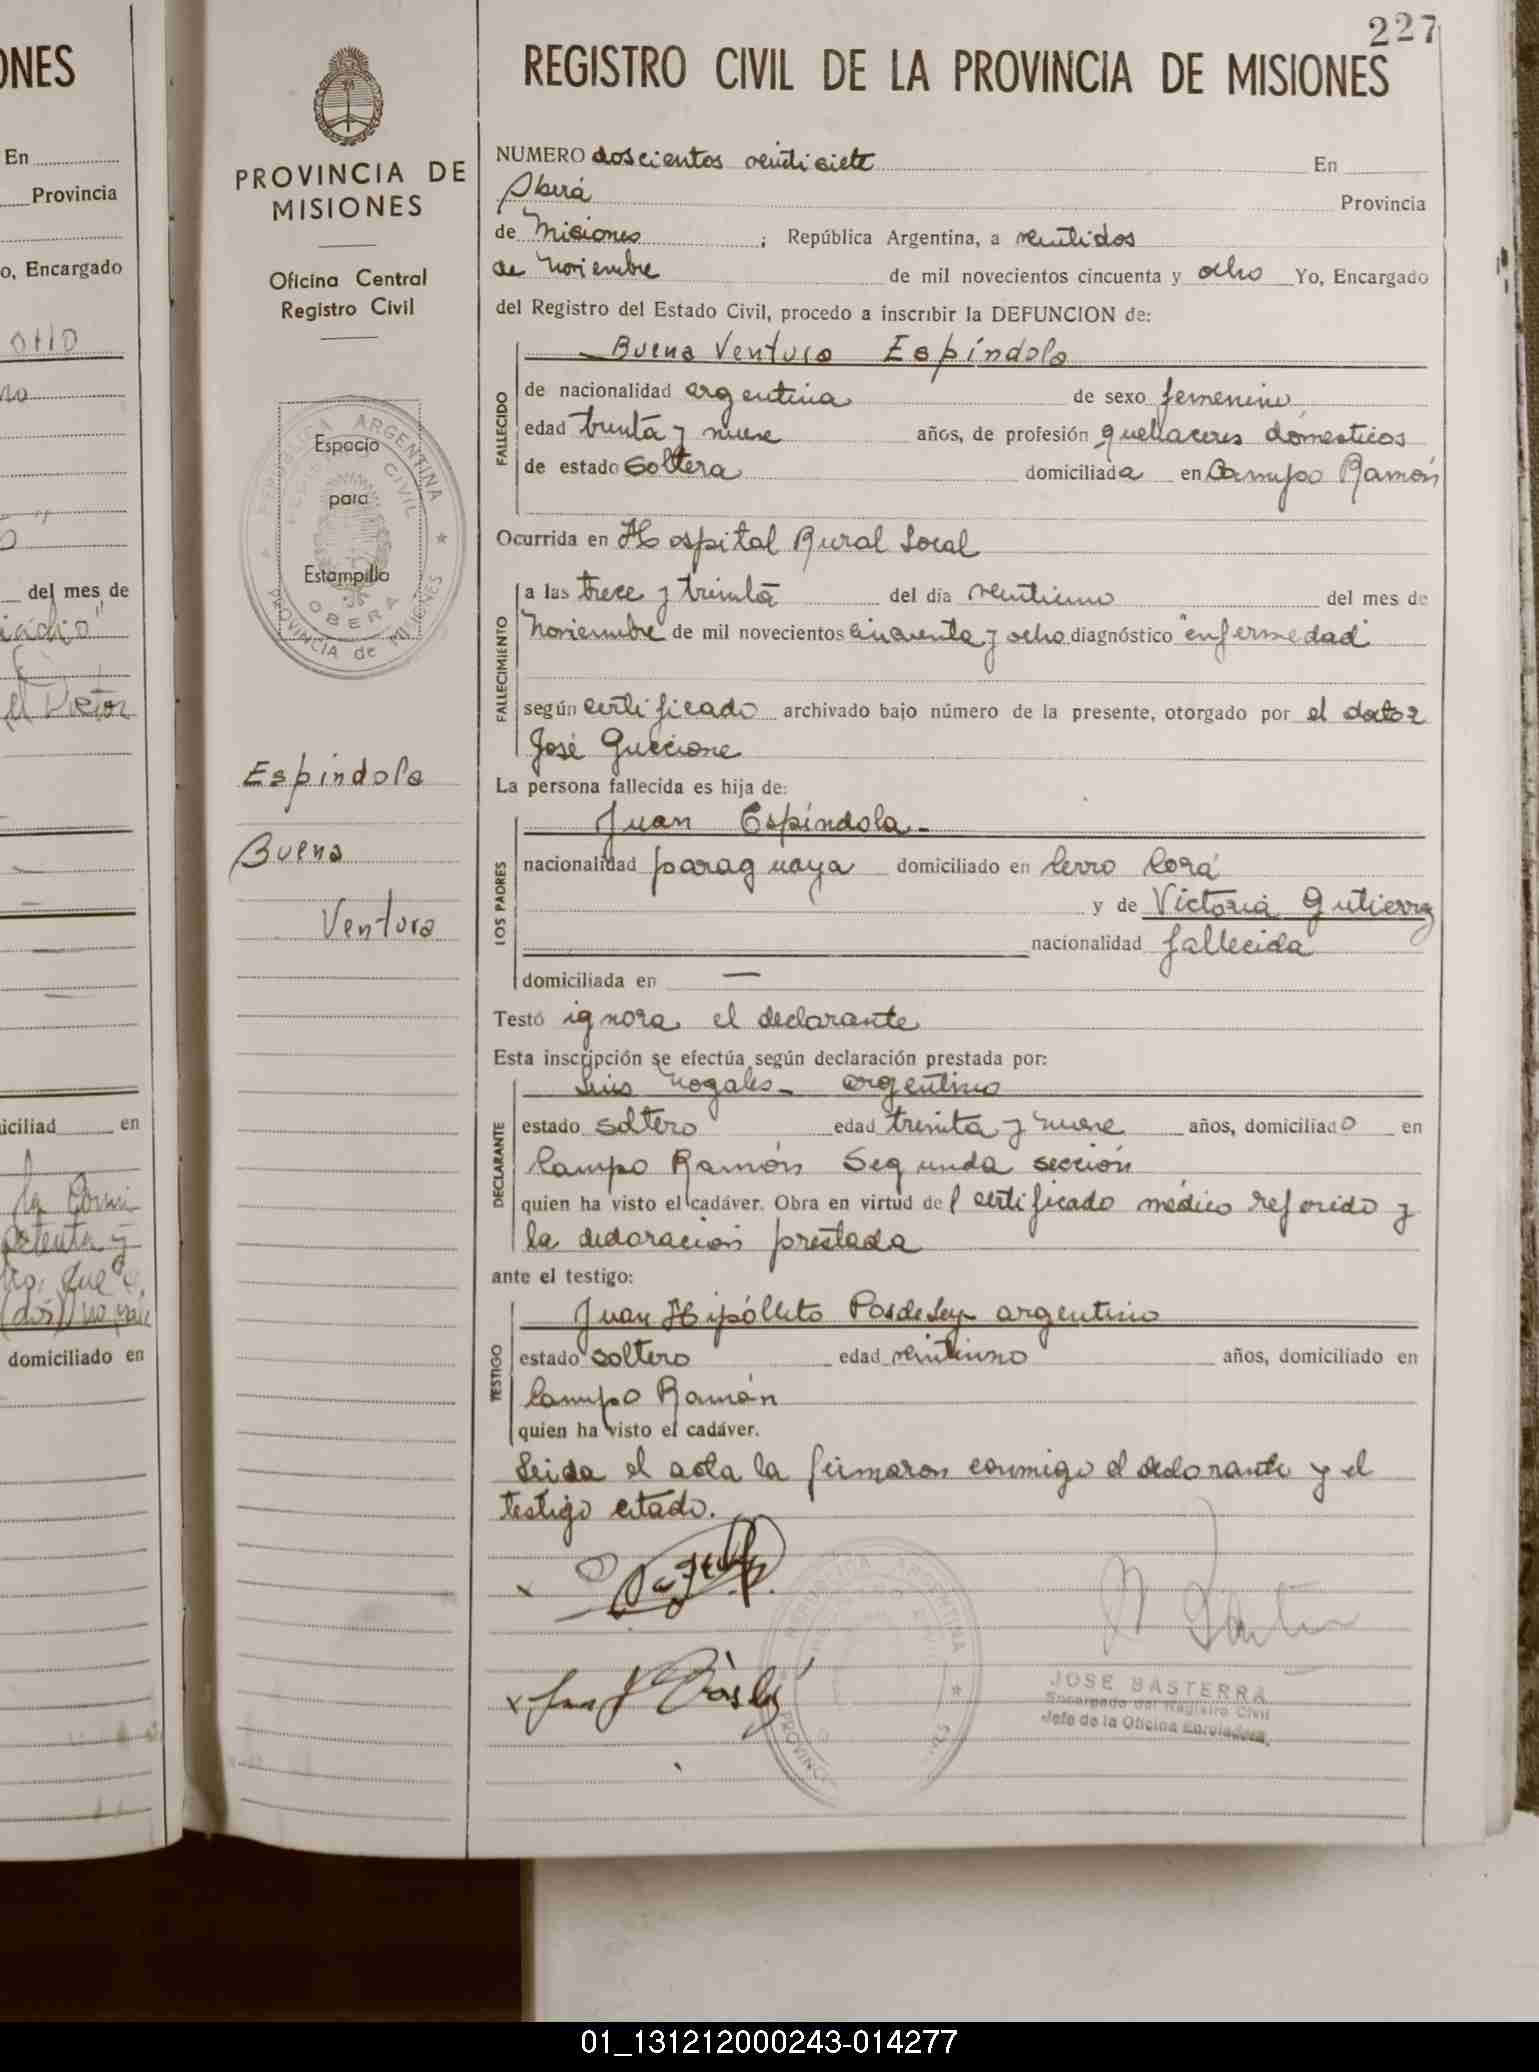 ONES
En
Provincia
o, Encargado
del mes de
iciliad en
domiciliado en
PROVINCIA DE
MISIONES
Oficina Central
Registro Civil
Espacio
para
Estampilla
REPUBLICA ARGENTINA
OBERA
PROVINCIA de MISIONES
Espíndola
Buena
Ventura
227
REGISTRO CIVIL DE LA PROVINCIA DE MISIONES
NUMERO doscientos veintisiete En
Oberá Provincia
de Misiones ; República Argentina, a veintidos
de Noviembre de mil novecientos cincuenta y ocho Yo, Encargado
del Registro del Estado Civil, procedo a inscribir la DEFUNCION de:
Buena Ventura Espíndola
FALLECIDO
de nacionalidad argentina de sexo femenino
edad treinta y nueve años, de profesión quehaceres domesticos
de estado soltera domiciliada en Campo Ramón
Ocurrida en Hospital Rural Local
FALLECIMIENTO
a las trece y treinta del día veintiuno del mes de
Noviembre de mil novecientos cincuenta y ocho diagnóstico "enfermedad"
según certificado archivado bajo número de la presente, otorgado por el doctor
José Guccione
La persona fallecida es hija de:
LOS PADRES
Juan Espíndola
nacionalidad paraguaya domiciliado en Cerro Corá
y de Victoria Gutierrez
nacionalidad fallecida
domiciliada en —
Testó ignora el declarante
Esta inscripción se efectúa según declaración prestada por:
DECLARANTE
Luis Nogales - argentino
estado soltero edad treinta y nueve años, domiciliado en
Campo Ramón Segunda sección
quien ha visto el cadáver. Obra en virtud del certificado médico referido y
la declaración prestada
ante el testigo:
TESTIGO
Juan Hipólito argentino
estado soltero edad veintiuno años, domiciliado en
Campo Ramón
quien ha visto el cadáver.
Leida el acta la firmaron conmigo el declarante y el
testigo citado.
JOSE BASTERRA
Encargado del Registro Civil
Jefe de la Oficina Enroladora
01_131212000243-014277